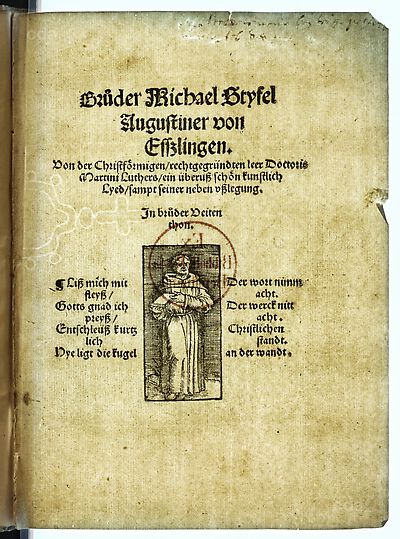 Brůder Michael Styfel
Augustiner von
Esszlingen.
Von der Christförmigen/rechtgegründten leer Doctoris
Martini Luthers/ein überuß schön kunstlich
Lyed/sampt seiner neben vßlegung.
In brůder Veiten
thon.
¶ Liß mich mit
fleyß/
Gotts gnad ich
preyß/
Entschleuß kurtz
lich
Hye ligt die kugel
Der wort nimm
acht.
Der werck nitt
acht.
Christlichen
standt.
an der wandt.